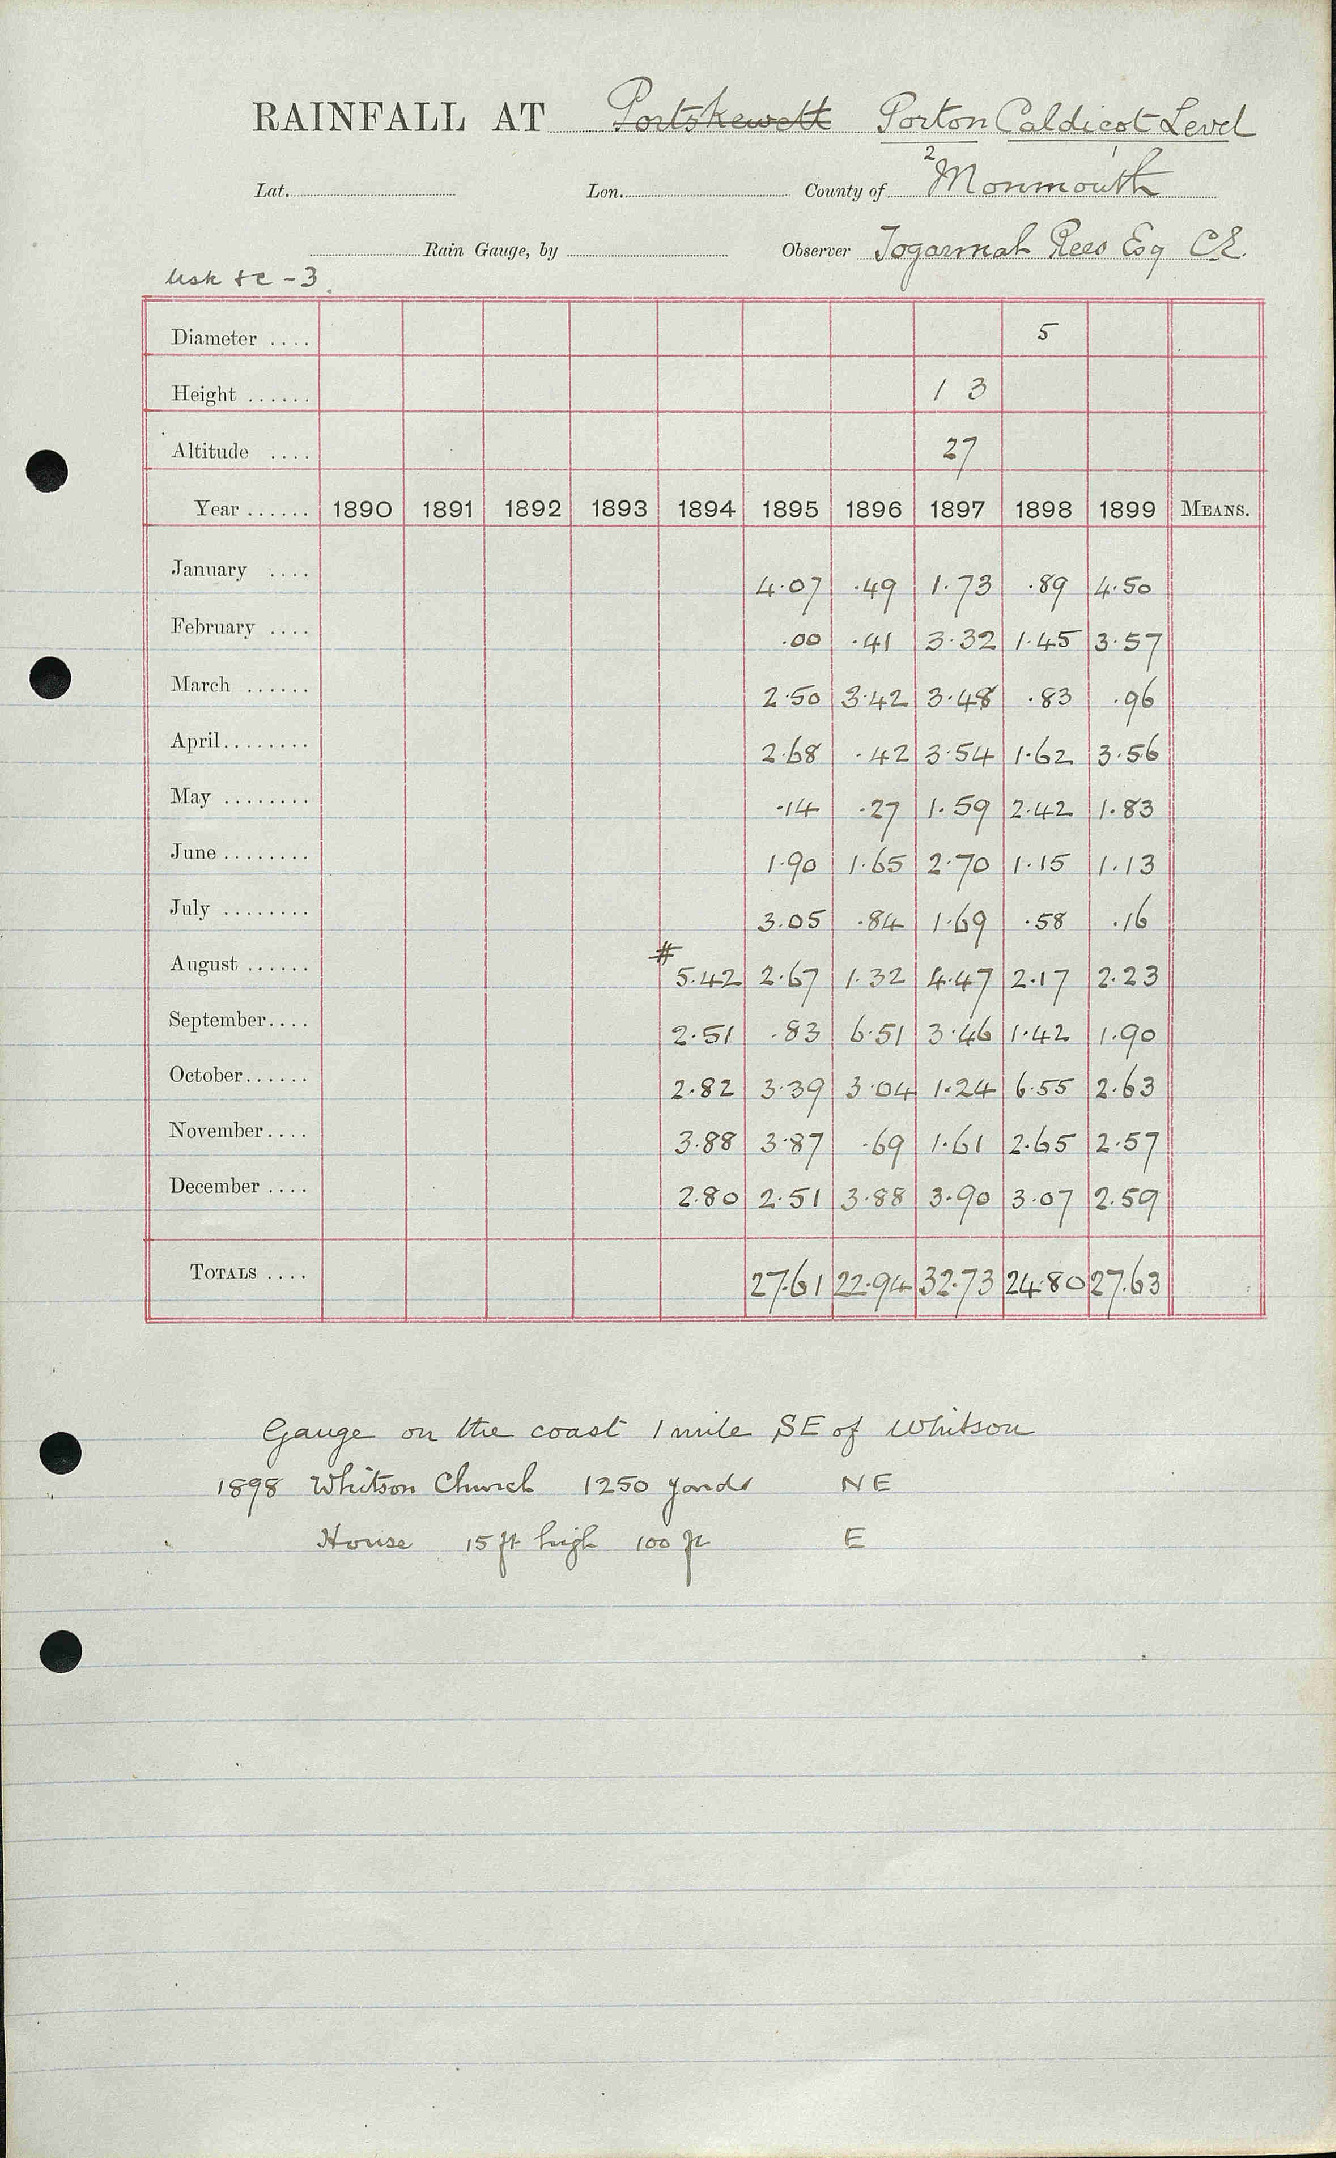 RAINFALL AT Portskewett Porton Caldicot Level
2 1
Lat. Lon. County of Monmouth
Rain Gauge, by Observer Togarmah Rees Esq C.E.
Usk &c - 3.
Diameter .... 5
Height ...... 1 3
Altitude .... 27
Year ...... 1890 1891 1892 1893 1894 1895 1896 1897 1898 1899 MEANS.
January .... 4.07 .49 1.73 .89 4.50
February .... .00 .41 3.32 1.45 3.57
March ...... 2.50 3.42 3.48 .83 .96
April........ 2.68 .42 3.54 1.62 3.56
May ........ .14 .27 1.59 2.42 1.83
June ........ 1.90 1.65 2.70 1.15 1.13
July ........ 3.05 .84 1.69 .58 .16
August ...... # 5.42 2.67 1.32 4.47 2.17 2.23
September.... 2.51 .83 6.51 3.46 1.42 1.90
October...... 2.82 3.39 3.04 1.24 6.55 2.63
November.... 3.88 3.87 .69 1.61 2.65 2.57
December .... 2.80 2.51 3.88 3.90 3.07 2.59
TOTALS .... 27.61 22.94 32.73 24.80 27.63
Gauge on the coast 1 mile SE of Whitson
1898 Whitson Church 1250 yards NE
House 15 ft high 100 ft E